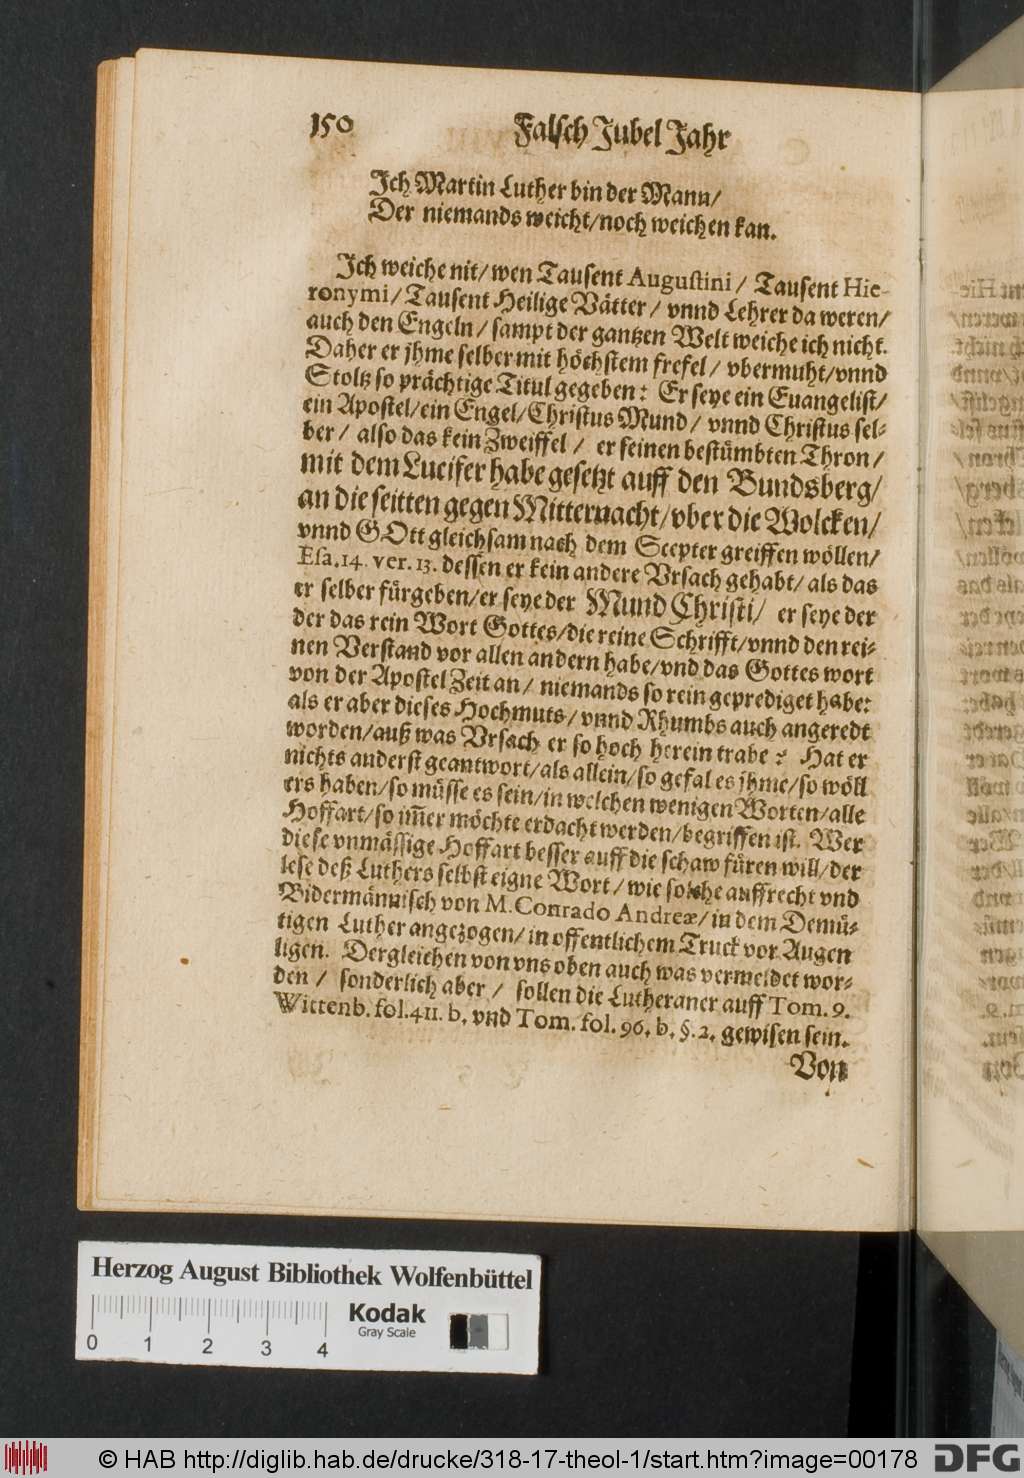 150 Falsch Jubel Jahr
Ich Martin Luther bin der Mann/
Der niemands weicht/noch weichen kan.
Ich weiche nit/ wen Tausent Augustini / Tausent Hie-
ronymi/ Tausent Heilige Vätter / vnnd Lehrer da weren/
auch den Engeln / sampt der gantzen Welt weiche ich nicht.
Daher er jhme selber mit höchstem frefel / vbermuht/vnnd
Stoltz so prächtige Titul gegeben: Er seye ein Euangelist/
ein Apostel/ein Engel/Christus Mund / vnnd Christus sel-
ber / also das kein Zweiffel / er seinen bestümbten Thron /
mit dem Lucifer habe gesetzt auff den Bundsberg/
an die seitten gegen Mitternacht/vber die Wolcken/
vnnd GOtt gleichsam nach dem Scepter greiffen wöllen/
Esa.14. ver. 13. dessen er kein andere Vrsach gehabt/ als das
er selber fürgeben/er seye der Mund Christi/ er seye der
der das rein Wort Gottes/die reine Schrifft/vnnd den rei-
nen Verstand vor allen andern habe/vnd das Gottes wort
von der Apostel Zeit an / niemands so rein geprediget habe:
als er aber dieses Hochmuts/ vnnd Rhumbs auch angeredt
worden/auß was Vrsach er so hoch herein trabe? Hat er
nichts anderst geantwort/als allein/so gefal es jhme/so wöll
ers haben/so müsse es sein/in welchen wenigen Worten/alle
Hoffart/so im̃er möchte erdacht werden/begriffen ist. Wer
diese vnmässige Hoffart besser auff die schaw füren will/der
lese deß Luthers selbst eigne Wort / wie solche auffrecht vnd
Bidermännisch von M. Conrado Andreæ/ in dem Demü-
tigen Luther angezogen/ in offentlichem Truck vor Augen
ligen. Dergleichen von vns oben auch was vermeldet wor-
den / sonderlich aber / sollen die Lutheraner auff Tom. 9.
Wittenb. fol. 411. b. vnd Tom. fol. 96. b. §. 2. gewisen sein.
Von
Herzog August Bibliothek Wolfenbüttel
0 1 2 3 4 Kodak
Gray Scale
© HAB http://diglib.hab.de/drucke/318-17-theol-1/start.htm?image=00178 DFG